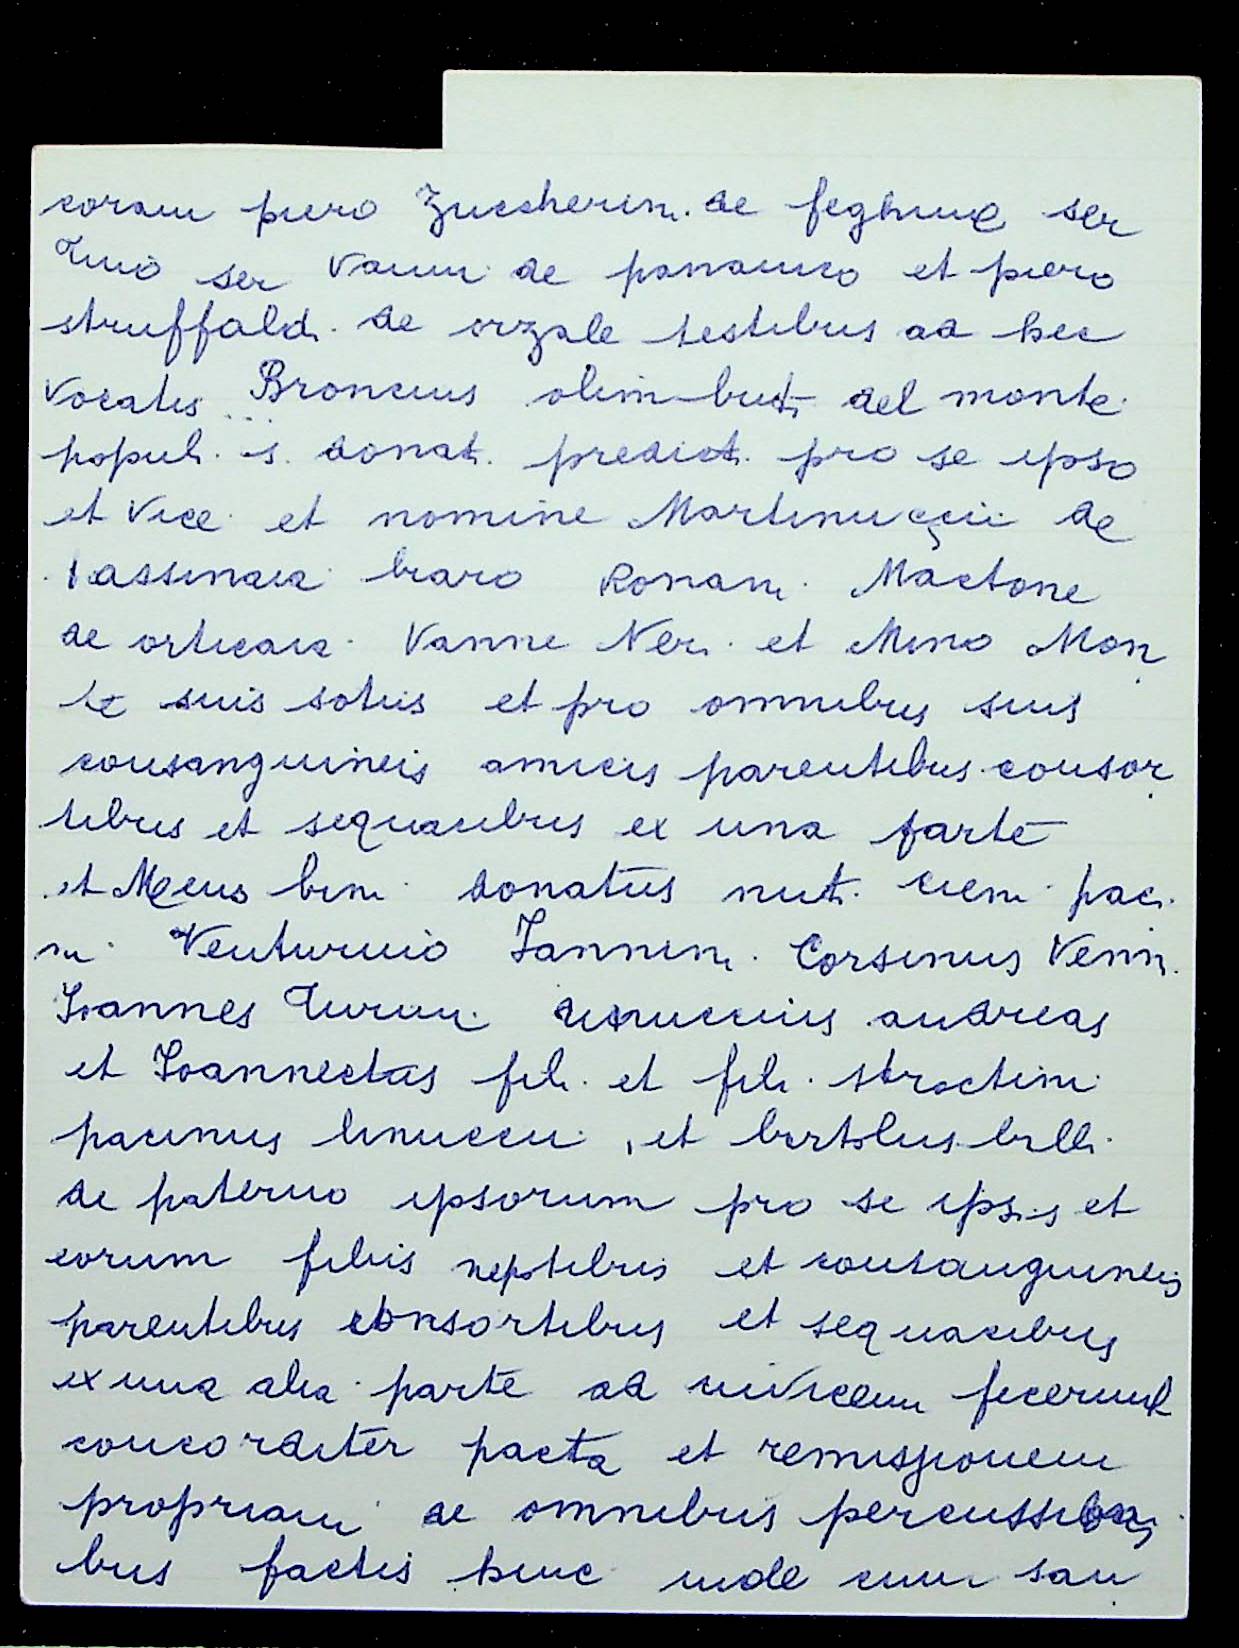 coram piero Zuccherin. de feghine ser
Tino ser Vanni de panauico et piero
struffald. de orzale testibus ad hec
vocatis Broncius olim buti del monte
popul. s. donat. predict. pro se ipso
et vice et nomine Martinuccii de
lassinaia braro Ronani. Mactone
de orticaia. Vanne Neri. et Mino Mon
te suis sotiis et pro omnibus suis
consanguineis amicis parentibus consor
tibus et sequacibus ex una parte
et Meus bini donatus nuti cieni paci
ni Venturuio Iannini. Corsinus Venin.
Ioannes Turini. andreas
et Ioannectas fili. et fili. stroctini
pacinus linuccii, et bertolus belli.
de paterno ipsorum pro se ipsis et
eorum filiis neptibus et consanguineis
parentibus consortibus et sequacibus
ex una alia parte ad invicem fecerunt
concorditer pacta et remissionem
propriam de omnibus percussioni
bus factis hinc inde cum san